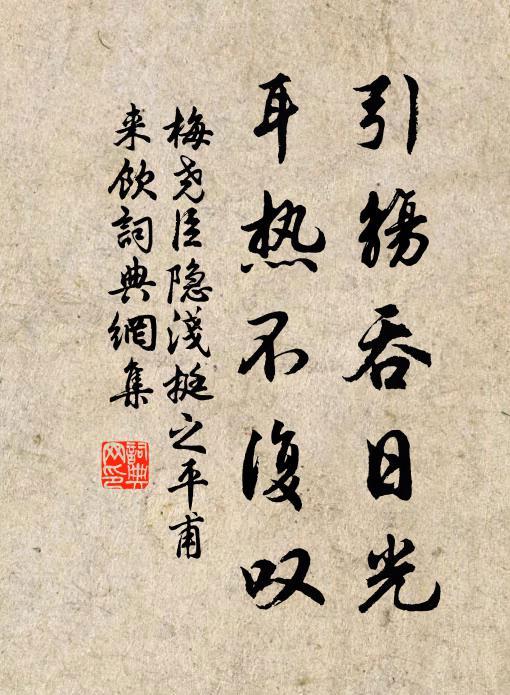 引觞吞日光
耳热不復叹
梅尧臣隐淺挺之平甫
来饮詞典網集
詞典
网印